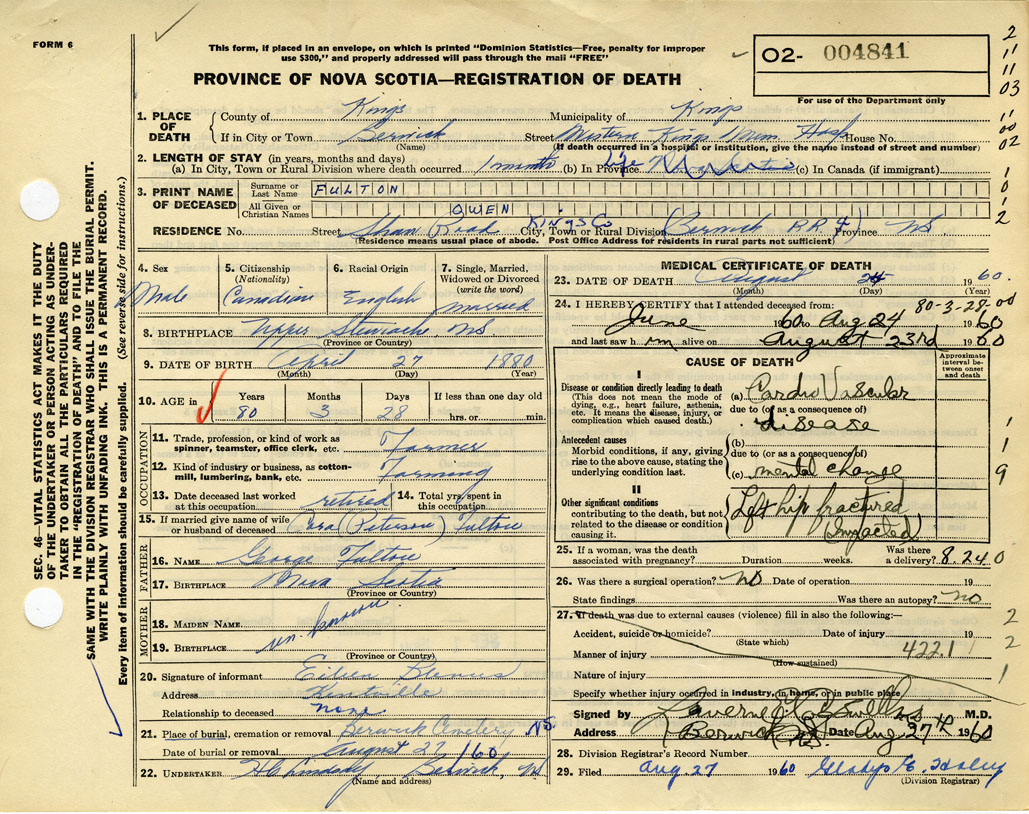 FORM 6
This form, if placed in an envelope, on which is printed "Dominion Statistics—Free, penalty for improper
use $300," and properly addressed will pass through the mail "FREE"
PROVINCE OF NOVA SCOTIA—REGISTRATION OF DEATH
02- 004841
For use of the Department only
2
11
11
03
11
00
02
SEC. 46—VITAL STATISTICS ACT MAKES IT THE DUTY
OF THE UNDERTAKER OR PERSON ACTING AS UNDER-
TAKER TO OBTAIN ALL THE PARTICULARS REQUIRED
IN THE "REGISTRATION OF DEATH" AND TO FILE THE
SAME WITH THE DIVISION REGISTRAR WHO SHALL ISSUE THE BURIAL PERMIT.
WRITE PLAINLY WITH UNFADING INK. THIS IS A PERMANENT RECORD.
Every item of information should be carefully supplied. (See reverse side for instructions.)
1. PLACE OF DEATH
County of Kings Municipality of Kings
If in City or Town Berwick Street Western Kings Mem. Hosp House No.
(Name) (If death occurred in a hospital or institution, give the name instead of street and number)
2. LENGTH OF STAY (in years, months and days)
(a) In City, Town or Rural Division where death occurred 1 month (b) In Province Life (c) In Canada (if immigrant)
3. PRINT NAME OF DECEASED
Surname or Last Name FULTON
All Given or Christian Names OWEN
RESIDENCE No. Street Shaw Road Kings Co City, Town or Rural Division (Berwick RR 4) Province NS
(Residence means usual place of abode. Post Office Address for residents in rural parts not sufficient)
4. Sex 5. Citizenship (Nationality) 6. Racial Origin 7. Single, Married, Widowed or Divorced (write the word)
Male Canadian English married
8. BIRTHPLACE Upper Stewiacke NS
(Province or Country)
9. DATE OF BIRTH April 27 1880
(Month) (Day) (Year)
10. AGE in Years Months Days If less than one day old
80 3 28 hrs. or min.
OCCUPATION
11. Trade, profession, or kind of work as spinner, teamster, office clerk, etc. Farmer
12. Kind of industry or business, as cotton-mill, lumbering, bank, etc. Farming
13. Date deceased last worked at this occupation retired 14. Total yrs. spent in this occupation
15. If married give name of wife or husband of deceased (Peterson) Fulton
FATHER
16. NAME George Fulton
17. BIRTHPLACE Nova Scotia
(Province or Country)
MOTHER
18. MAIDEN NAME
19. BIRTHPLACE unknown
(Province or Country)
20. Signature of informant Eileen
Address Kentville
Relationship to deceased none
21. Place of burial, cremation or removal Berwick Cemetery NS.
Date of burial or removal August 27 1960
22. UNDERTAKER H C Lindsay Berwick, NS
(Name and address)
MEDICAL CERTIFICATE OF DEATH
23. DATE OF DEATH August 24 1960.
(Month) (Day) (Year)
80-3-28-00
24. I HEREBY CERTIFY that I attended deceased from:
June 1960 to Aug 24 1960
and last saw him alive on August 23rd 1960
CAUSE OF DEATH
Approximate interval between onset and death
I
Disease or condition directly leading to death
(This does not mean the mode of dying, e.g., heart failure, asthenia, etc. It means the disease, injury, or complication which caused death.)
(a) Cardio Vascular
due to (or as a consequence of)
disease
Antecedent causes
Morbid conditions, if any, giving rise to the above cause, stating the underlying condition last.
(b)
due to (or as a consequence of)
(c) mental change
II
Other significant conditions
contributing to the death, but not related to the disease or condition causing it.
Left hip fractured
(Impacted)
1
1
9
25. If a woman, was the death associated with pregnancy? Duration weeks. Was there a delivery? 8.240
26. Was there a surgical operation? no Date of operation 19
State findings Was there an autopsy? no
27. If death was due to external causes (violence) fill in also the following:—
Accident, suicide or homicide? Date of injury 19
(State which)
Manner of injury 422.1
(How sustained)
Nature of injury
Specify whether injury occurred in industry, in home, or in public place
2
2
1
Signed by M.D.
Address Berwick NS Date Aug 27th 1960
28. Division Registrar's Record Number
29. Filed Aug. 27 1960 Gladys
(Division Registrar)